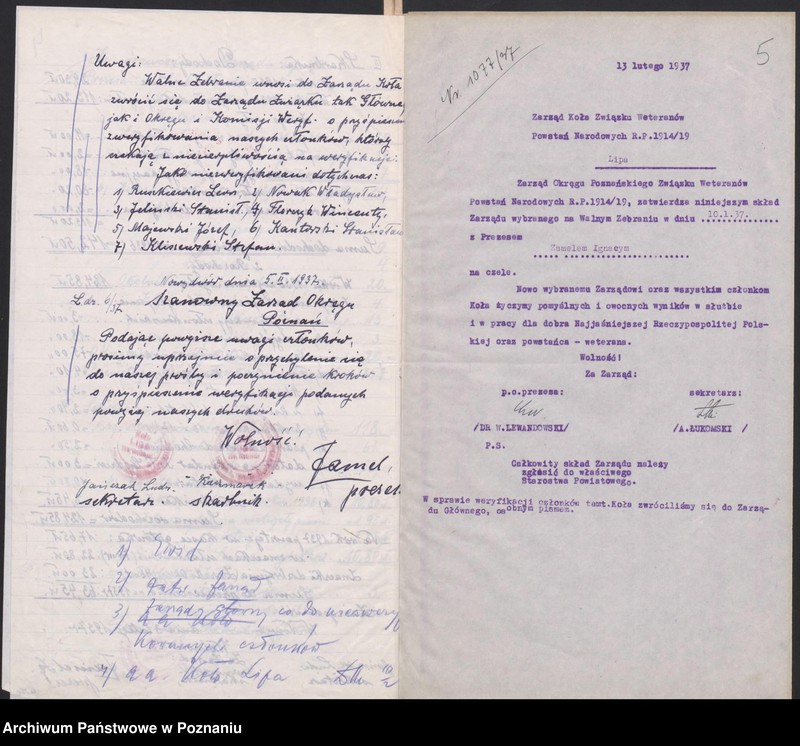 Uwagi:
Walne Zebranie wnosi do Zarządu Koła
zwrócić się do Zarządu Związku tak Główne
jak i Okręgu i Komisji Weryf. o przyśpiesze
zweryfikowania naszych członków, którzy
czekają z niecierpliwością na weryfikację.
Jako niezweryfikowani dotychczas:
1) Ruszkiewicz Leon, 2) Nowak Władysław,
3) Jeliński Stanisł., 4) Florczyk Wincenty,
5) Majewski Józef, 6) Kantorski Stanisław
7) Kliszewski Stefan.
Nowydwór, dnia 5.II.1937.
L.dz. 6/37
Szanowny Zarząd Okręgu
Poznań
Podając powyższe uwagi członków,
prosimy uprzejmie o przychylenie się
do naszej prośby i poczynienie kroków
o przyśpieszenie weryfikacji podanych
powyżej naszych druhów.
Wolność!
Zamel,
prezes
Kaczmarek
sekretarz. skarbnik.
1)
2) Zarząd
3) Zarząd główny co do
członków
4) a a. Koło Lipa
5
Nr. 1077/37
13 lutego 1937
Zarząd Koła Związku Weteranów
Powstań Narodowych R.P.1914/19
Lipa
Zarząd Okręgu Poznańskiego Związku Weteranów
Powstań Narodowych R.P.1914/19, zatwierdza niniejszym skład
Zarządu wybranego na Walnym Zebraniu w dniu 10.1.37.
z Prezesem
Zamelem Ignacym
na czele.
Nowo wybranemu Zarządowi oraz wszystkim członkom
Koła życzymy pomyślnych i owocnych wyników w służbie
i w pracy dla dobra Najjaśniejszej Rzeczypospolitej Pols-
kiej oraz powstańca - weterana.
Wolność!
Za Zarząd:
p.o.prezesa: sekretarz:
/DR W.LEWANDOWSKI/ /A.ŁUKOMSKI /
P.S.
Całkowity skład Zarządu należy
zgłosić do właściwego
Starostwa Powiatowego.
W sprawie weryfikacji członków tamt.Koła zwróciliśmy się do Zarzą-
du Głównego, osobnym pismem.
Archiwum Państwowe w Poznaniu